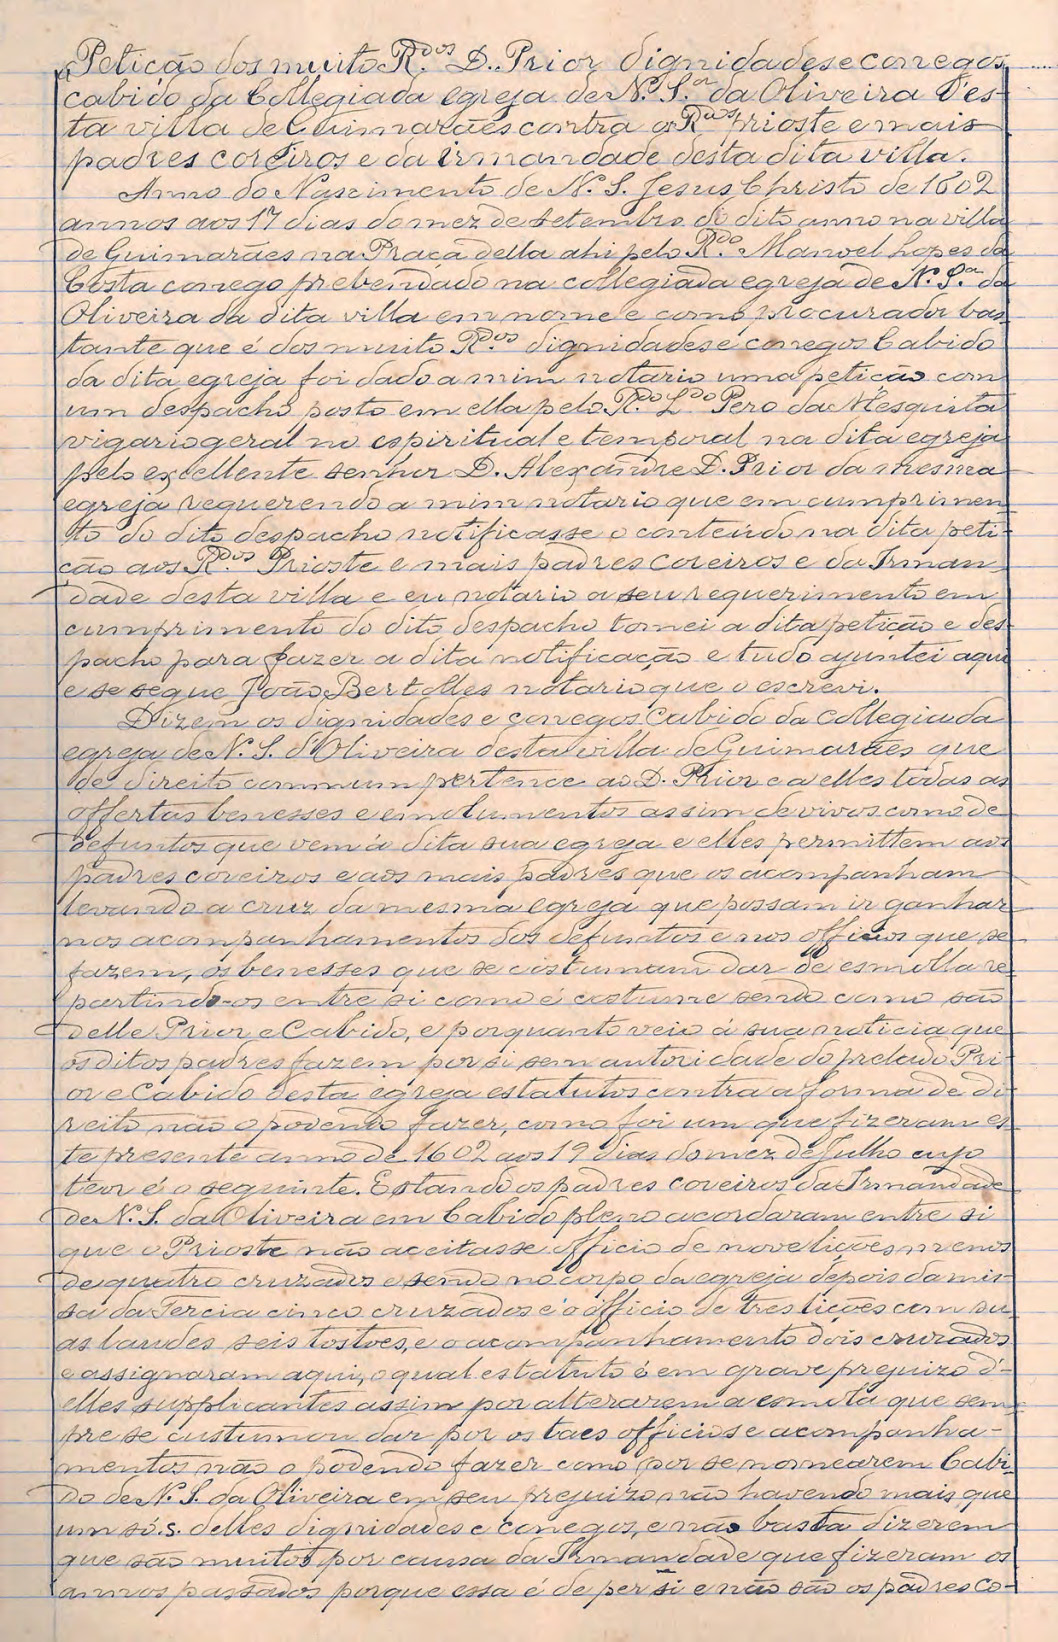 Petição dos muito R.dos D. Prior dignidades e conegos
cabido da Collegiada egreja de N. S.ra da Oliveira des-
ta villa de Guimarães contra os R.dos prioste e mais
padres coreiros e da irmandade desta dita villa.
Anno do Nascimento de N. S. Jesus Christo de 1602
annos aos 17 dias do mez de setembro do dito anno na villa
de Guimarães na Praça della ahi pelo R.do Manoel Lopes da
Costa conego prebendado na collegiada egreja de N. S.ra da
Oliveira da dita villa em nome e como procurador bas-
tante que é dos muito R.dos dignidades e conegos Cabido
da dita egreja foi dado a mim notario uma petição com
um despacho posto em ella pelo R.do L.do Pero da Mesquita
vigario geral no espiritual e temporal na dita egreja
pelo excellente senhor D. Alexandre D. Prior da mesma
egreja requerendo a mim notario que em cumprimen
to do dito despacho notificasse o conteúdo na dita peti-
ção aos R.dos Prioste e mais padres coreiros e da Irman
dade desta villa e eu notario a seu requerimento em
cumprimento do dito despacho tomei a dita petição e des-
pacho para fazer a dita notificação e tudo ajuntei aqui
e se segue João Bertolles notario que o escrevi.
Dizem os dignidades e conegos Cabido da Collegiada
egreja de N. S. d'Oliveira desta villa de Guimarães que
de direito commum pertence ao D. Prior e a elles todas as
offertas benesses e emolumentos assim de vivos como de
defuntos que vem á dita sua egreja e elles permittem aos
padres coreiros e aos mais padres que os acompanham
levando a cruz da mesma egreja que possam ir ganhar
nos acompanhamentos dos defuntos e nos officios que se
fazem, os benesses que se costumam dar de esmolla re
partindo-os entre si como é costume sendo como são
delle Prior e Cabido, e porquanto veio á sua noticia que
os ditos padres fazem por si sem autoridade do prelado Pri-
or e Cabido desta egreja estatutos contra a forma de di
reito não o podendo fazer, como foi um que fizeram es-
te presente anno de 1602 aos 19 dias do mez de Julho cujo
teor é o seguinte. Estando os padres coreiros da Irmandade
de N. S. da Oliveira em Cabido pleno acordaram entre si
que o Prioste não aceitasse officio de nove lições menos
de quatro cruzados e sendo no corpo da egreja depois da mis-
sa da Tercia cinco cruzados e o officio de tres lições com su
as laudes seis tostões, e o acompanhamento dois cruzados
e assignaram aqui, o qual estatuto é em grave prejuizo d'-
elles supplicantes assim por alterarem a esmola que sem
pre se custumou dar por os taes officios e acompanha-
mentos não o podendo fazer como por se nomearem Cabi-
do de N. S. da Oliveira em seu prejuizo não havendo mais que
um só .s. delles dignidades e conegos, e não basta dizerem
que são muitos por causa da Irmandade que fizeram os
annos passados porque essa é de per si e não são os padres co-